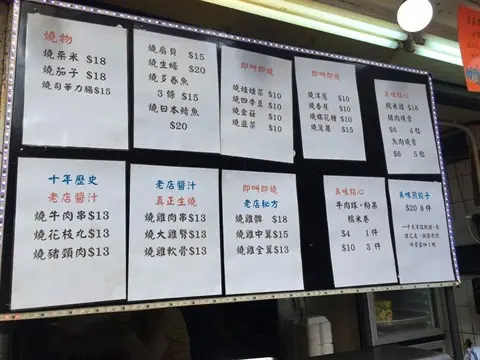 燒物
燒粟米 $18
燒茄子 $18
燒司華力腸$15
燒扇貝 $15
燒生蠔 $20
燒多春魚
3條 $15
燒日本鯖魚
$20
即叫即燒
燒娃娃菜 $10
燒四季豆 $10
燒金菇 $10
燒韮菜 $10
即叫即燒
燒洋葱 $10
燒香蕉 $10
燒棉花糖 $10
燒菠蘿 $15
美味點心
糯米雞 $18
豬肉燒賣
$6 4粒
魚肉燒賣
$6 5粒
十年歷史
老店醬汁
燒牛肉串$13
燒花枝丸$13
燒豬頸肉$13
老店醬汁
真正生燒
燒雞肉串$13
燒大雞腎$13
燒雞軟骨$13
即叫即燒
老店秘方
燒雞髀 $18
燒雞中翼$15
燒雞全翼$13
美味點心
牛肉球·粉果
糯米卷
$4 1件
$10 3件
美味煎餃子
$20 8件